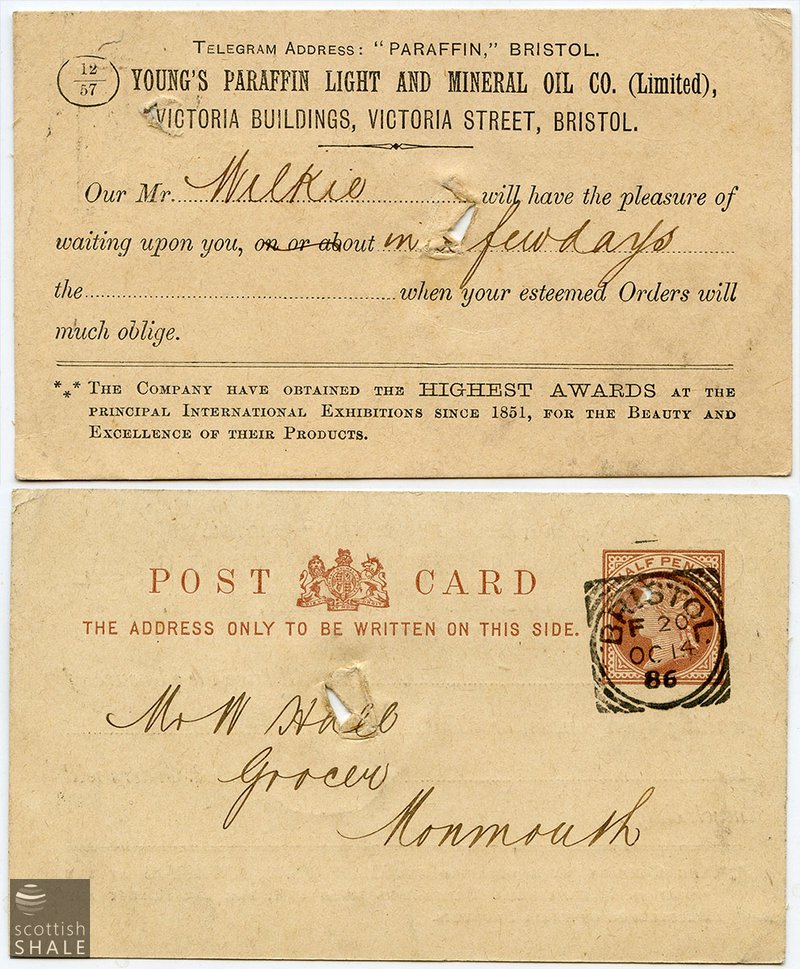 TELEGRAM ADDRESS: "PARAFFIN," BRISTOL.
12
57
YOUNG'S PARAFFIN LIGHT AND MINERAL OIL CO. (Limited),
VICTORIA BUILDINGS, VICTORIA STREET, BRISTOL.
Our Mr. Wilkie will have the pleasure of
waiting upon you, on or about in few days
the when your esteemed Orders will
much oblige.
*** THE COMPANY HAVE OBTAINED THE HIGHEST AWARDS AT THE
PRINCIPAL INTERNATIONAL EXHIBITIONS SINCE 1851, FOR THE BEAUTY AND
EXCELLENCE OF THEIR PRODUCTS.
POST CARD
THE ADDRESS ONLY TO BE WRITTEN ON THIS SIDE.
HALF PENNY
BRISTOL
F 20
OC 14
86
Mr W Hall
Grocer
Monmouth
scottish
SHALE